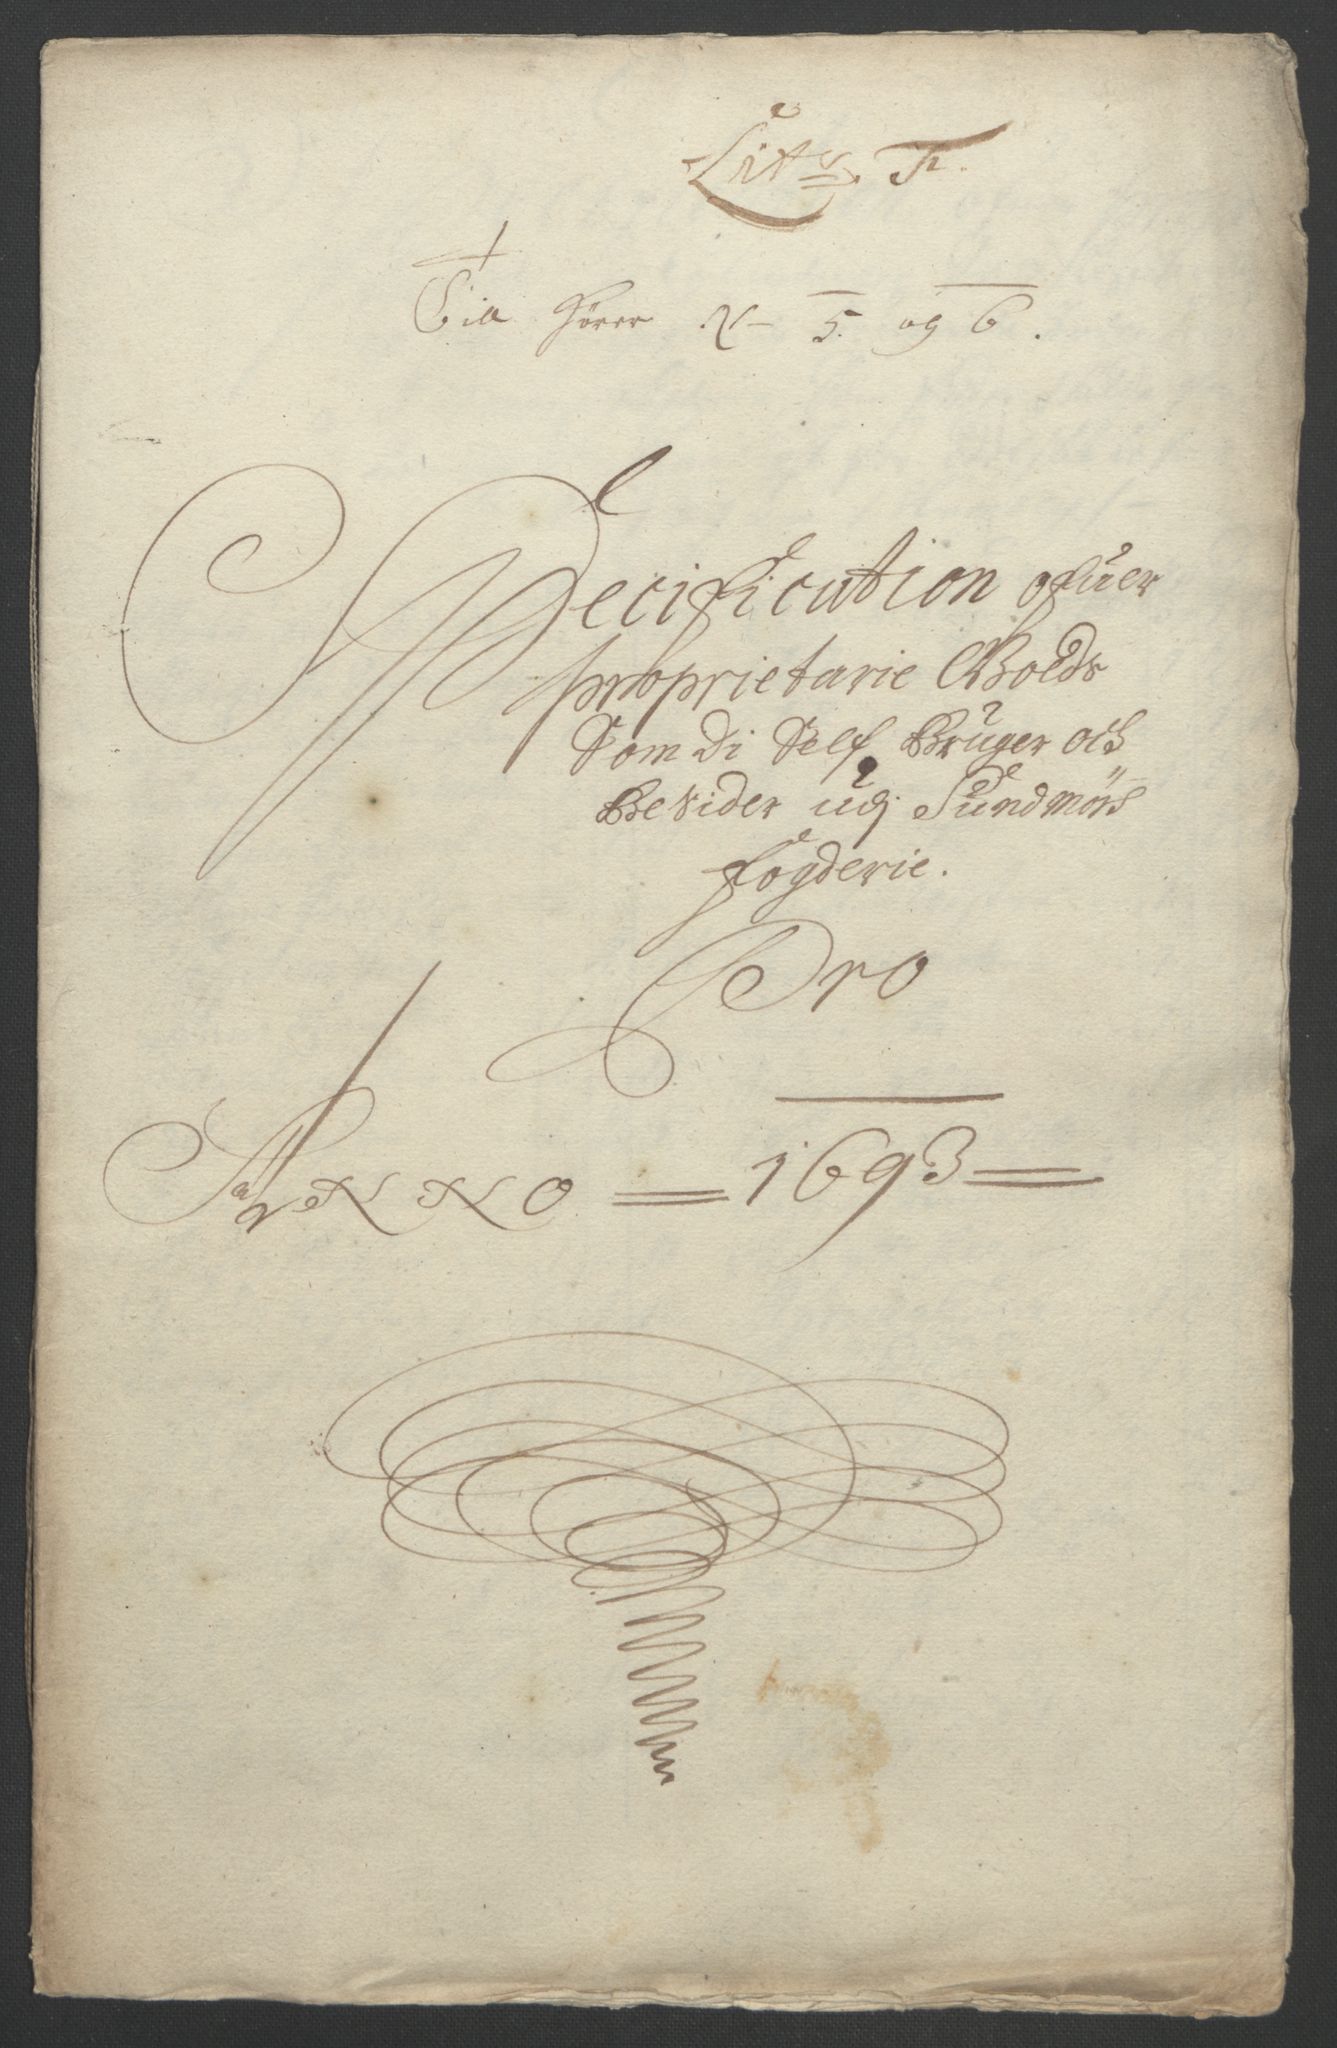 Litr F.
Till hörer N– 5. og 6.
Specification ofuer
proprietarie Goeds
Som di Self Brüger och
Besider udj Sundmörs
fogderie.
Pro
ANNO = 1693 =